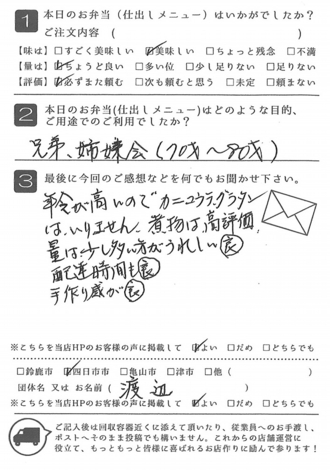 1 本日のお弁当(仕出しメニュー)はいかがでしたか?
ご注文内容 (　　　)
【味は】□すごく美味しい ☑美味しい □ちょっと残念 □不満
【量は】☑ちょうど良い □多い位 □少し足りない □足りない
【評価】☑必ずまた頼む □次も頼むと思う □未定 □頼まない
2 本日のお弁当(仕出しメニュー)はどのような目的、
ご用途でのご利用でしたか?
兄弟、姉妹会(70才〜80才)
3 最後に今回のご感想などを何でもお聞かせ下さい。
年令が高いのでカニコウラグラタン
はいりません。煮物は高評価、
量は少し多い方がうれしい 良
配達時間も良
手作り感が良
※こちらを当店HPのお客様の声に掲載して ☑よい □だめ □どちらでも
□鈴鹿市 ☑四日市市 □亀山市 □津市 □他(　　　)
団体名 又は お名前 ( 渡辺 )
※こちらを当店HPのお客様の声に掲載して ☑よい □だめ □どちらでも
ご記入後は回収容器近くに添えて頂いたり、従業員へのお手渡し、
ポストへそのまま投稿でも構いません。これからの店舗運営に
役立て、もっともっと皆様に喜ばれるお店作りに励んで参ります!